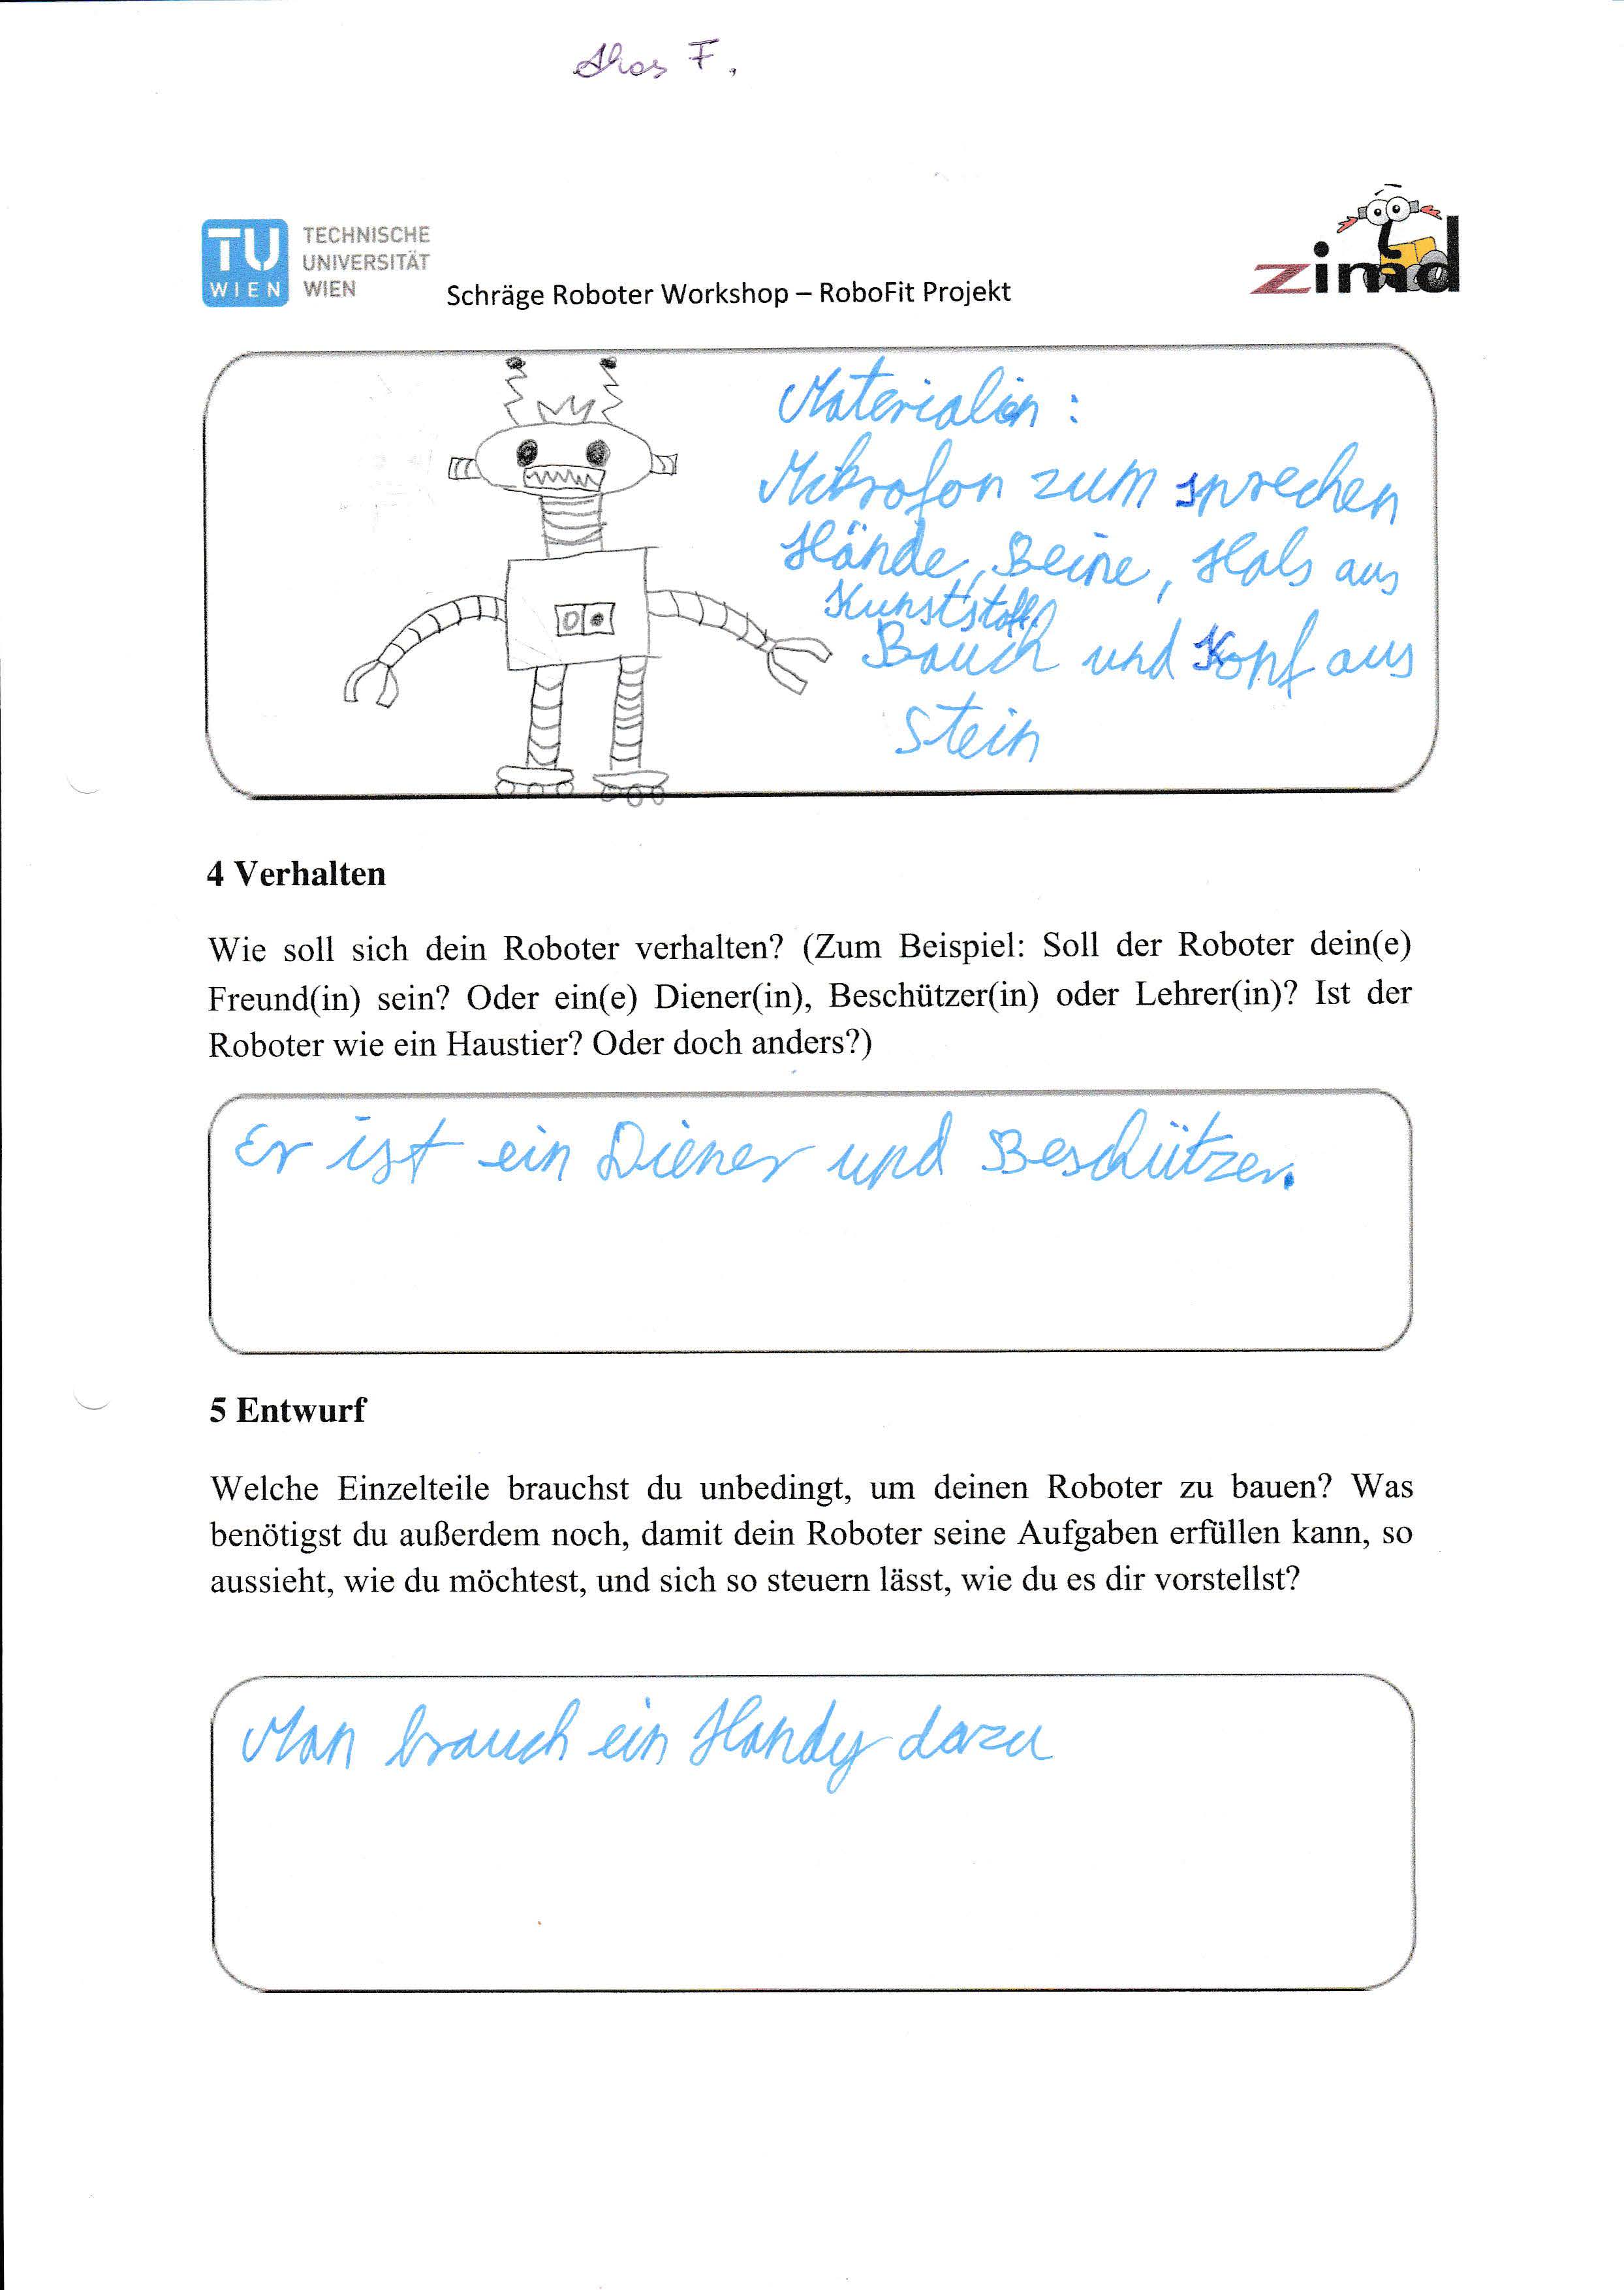 F.
TU
WIEN
TECHNISCHE
UNIVERSITÄT
WIEN
Schräge Roboter Workshop – RoboFit Projekt
zimd
Materialien :
Mikrofon zum sprechen
Hände, Beine, Hals aus
Kunststoff.
Bauch und Kopf aus
Stein
4 Verhalten
Wie soll sich dein Roboter verhalten? (Zum Beispiel: Soll der Roboter dein(e)
Freund(in) sein? Oder ein(e) Diener(in), Beschützer(in) oder Lehrer(in)? Ist der
Roboter wie ein Haustier? Oder doch anders?)
Er ist ein Diener und Beschützer.
5 Entwurf
Welche Einzelteile brauchst du unbedingt, um deinen Roboter zu bauen? Was
benötigst du außerdem noch, damit dein Roboter seine Aufgaben erfüllen kann, so
aussieht, wie du möchtest, und sich so steuern lässt, wie du es dir vorstellst?
Man brauch ein Handy dazu